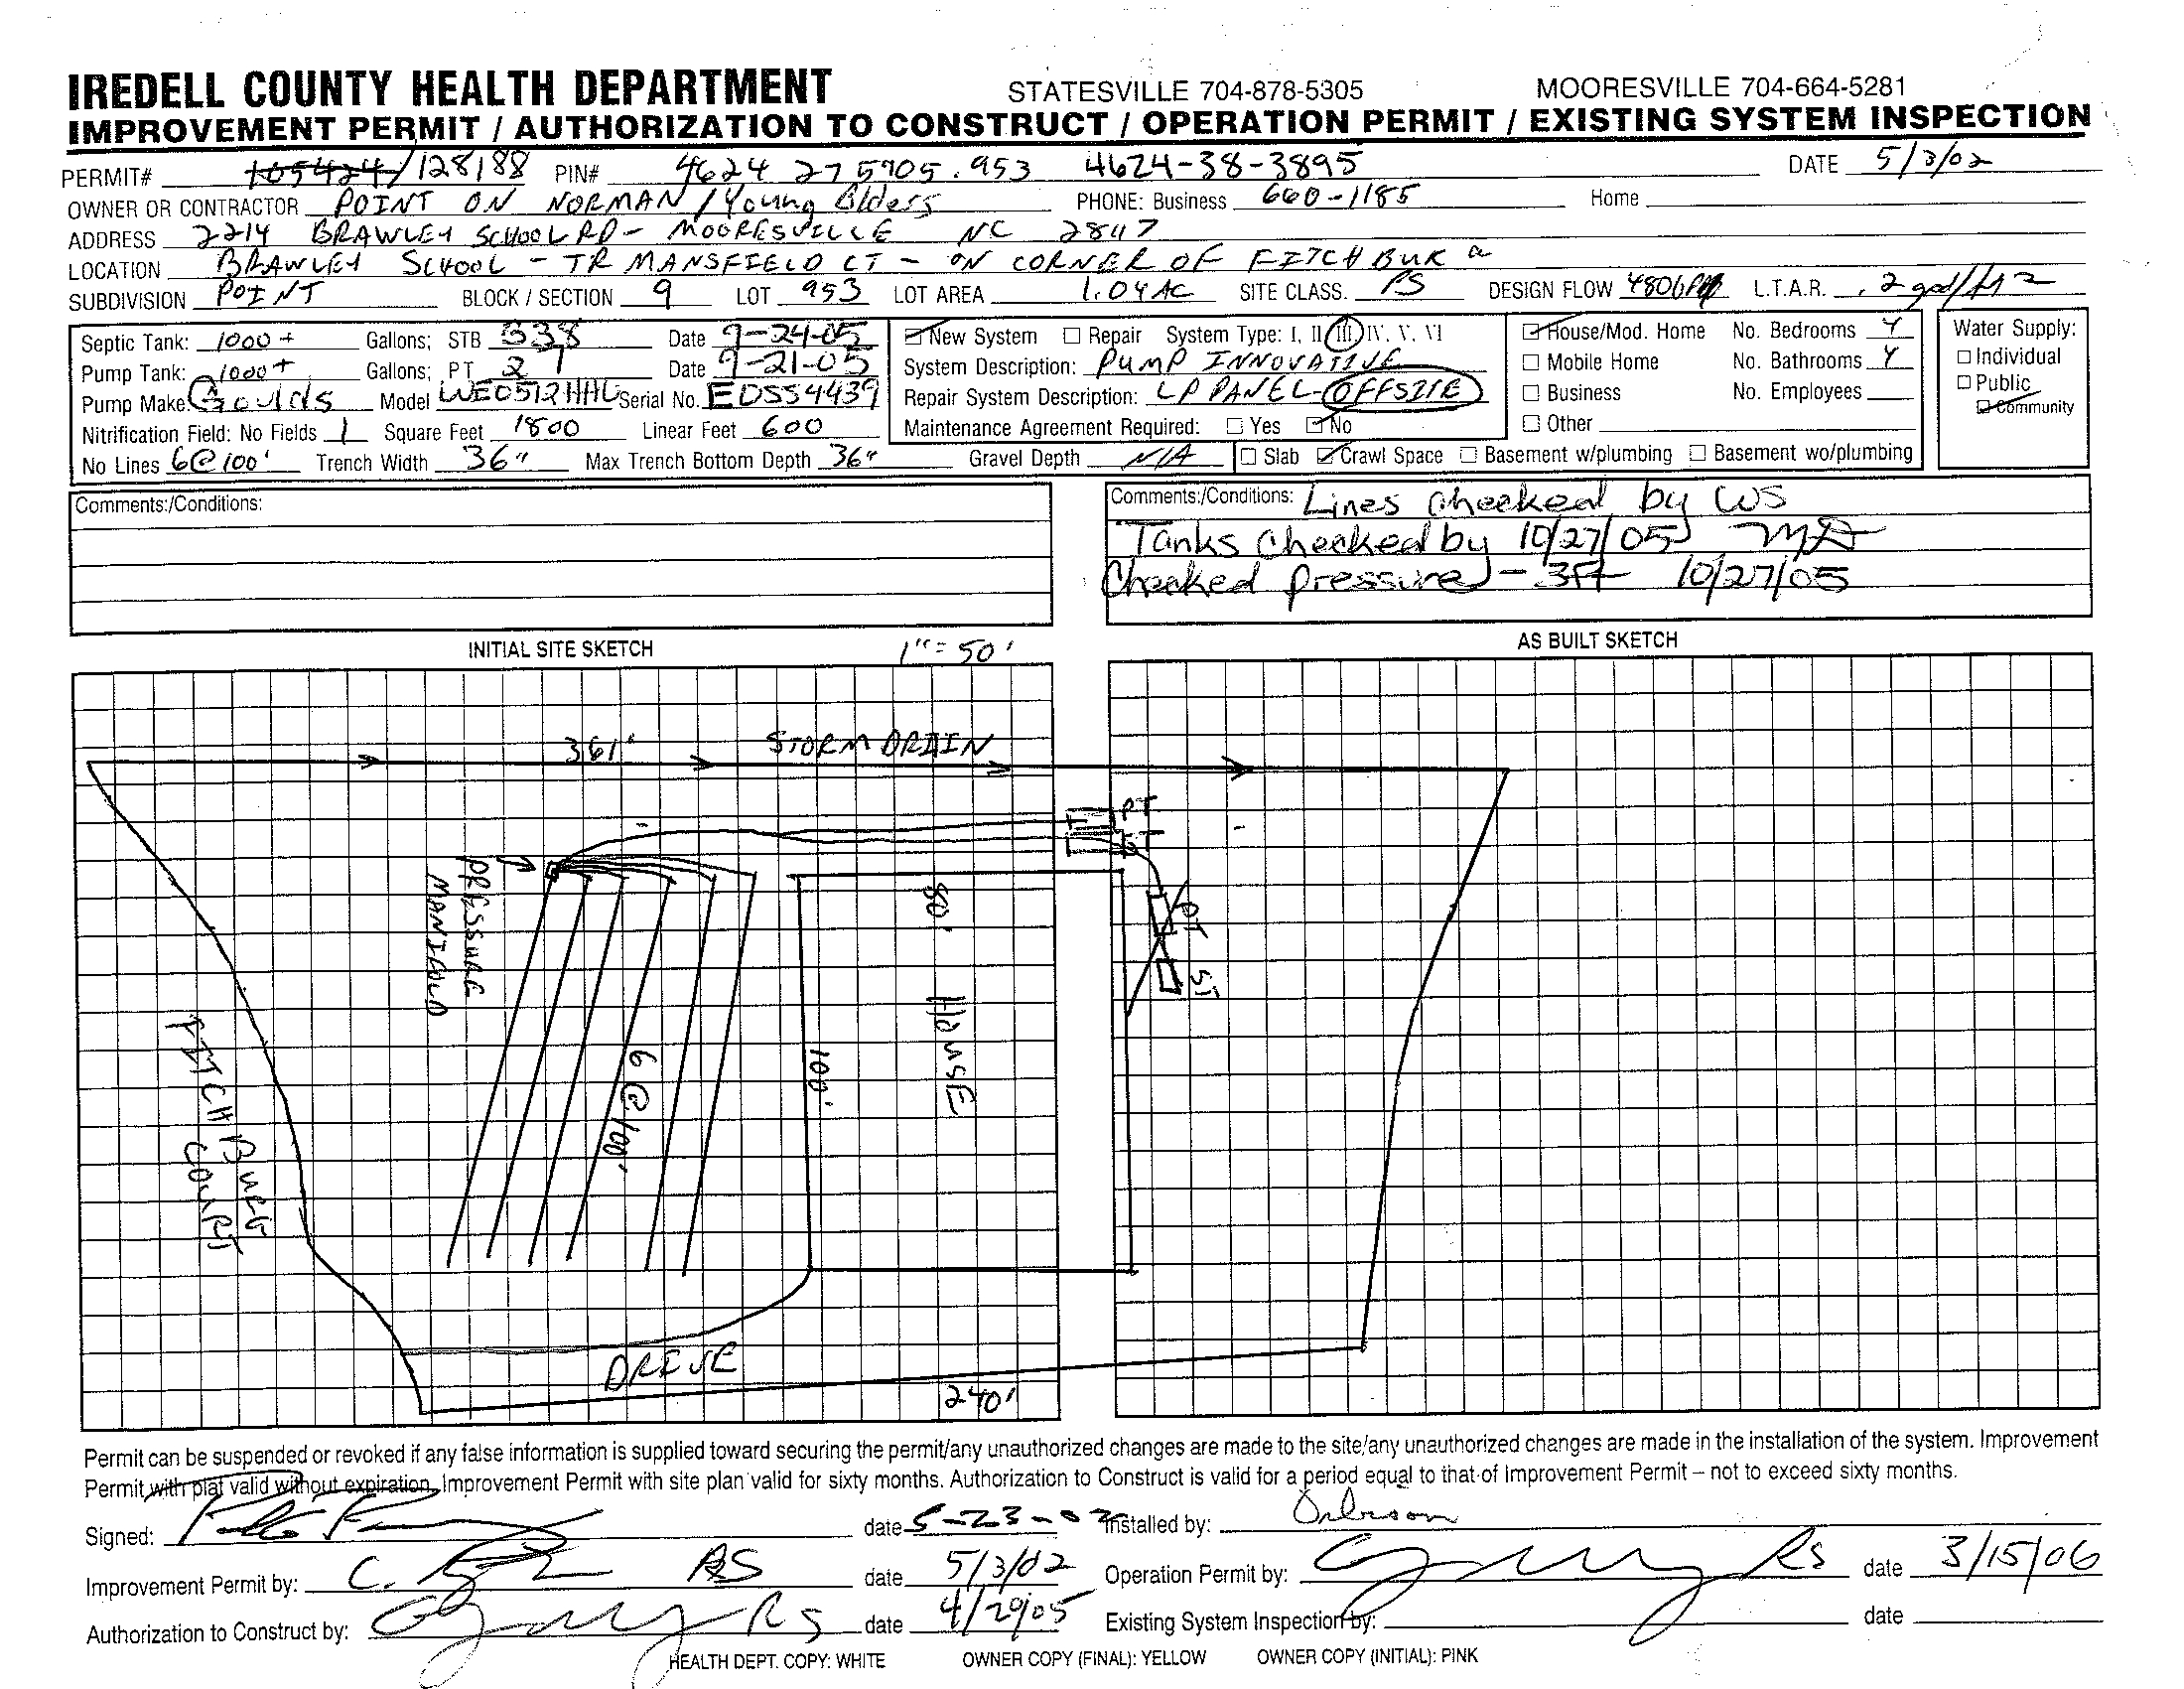 IREDELL COUNTY HEALTH DEPARTMENT STATESVILLE 704-878-5305 MOORESVILLE 704-664-5281
IMPROVEMENT PERMIT / AUTHORIZATION TO CONSTRUCT / OPERATION PERMIT / EXISTING SYSTEM INSPECTION
PERMIT# 105424/128188 PIN# 4624 275905.953 4624-38-3895 DATE 5/3/02
OWNER OR CONTRACTOR POINT ON NORMAN / Young Blders PHONE: Business 660-1185 Home
ADDRESS 2214 BRAWLEY SCHOOL RD - MOORESVILLE NC 28117
LOCATION BRAWLEY SCHOOL - TR MANSFIELD CT - ON CORNER OF FITCHBUR
SUBDIVISION POINT BLOCK / SECTION 9 LOT 953 LOT AREA 1.04 AC SITE CLASS. PS DESIGN FLOW 480 GPD L.T.A.R. .2 gal/ft2
Septic Tank: 1000+ Gallons; STB 338 Date 9-24-05 New System Repair System Type: I, II, III, IV, V, VI House/Mod. Home No. Bedrooms 4 Water Supply:
Pump Tank: 1000+ Gallons; PT 21 Date 9-21-05 System Description: PUMP INNOVATIVE Mobile Home No. Bathrooms 4 Individual
Pump Make: Goulds Model WE0512HHL Serial No. EDSS4439 Repair System Description: LP PANEL - OFFSITE Business No. Employees Public
Nitrification Field: No Fields 1 Square Feet 1800 Linear Feet 600 Maintenance Agreement Required: Yes No Other Community
No Lines 6@100' Trench Width 36" Max Trench Bottom Depth 36" Gravel Depth N/A Slab Crawl Space Basement w/plumbing Basement wo/plumbing
Comments:/Conditions:
Comments:/Conditions: Lines checked by WS
Tanks Checked by 10/27/05
Checked pressure - 3ft 10/27/05
INITIAL SITE SKETCH 1"=50' AS BUILT SKETCH
361' STORM DRAIN
PT
ST
PRESSURE
MANIFOLD
80'
HOUSE
PT ST
6@100'
100'
FITCHBURG
COURT
DRIVE
240'
Permit can be suspended or revoked if any false information is supplied toward securing the permit/any unauthorized changes are made to the site/any unauthorized changes are made in the installation of the system. Improvement
Permit with plat valid without expiration, Improvement Permit with site plan valid for sixty months. Authorization to Construct is valid for a period equal to that of Improvement Permit – not to exceed sixty months.
Signed: date 5-23-02 Installed by:
Improvement Permit by: C. RS date 5/3/02 Operation Permit by: RS date 3/15/06
Authorization to Construct by: RS date 4/29/05 Existing System Inspection by: date
HEALTH DEPT. COPY: WHITE OWNER COPY (FINAL): YELLOW OWNER COPY (INITIAL): PINK